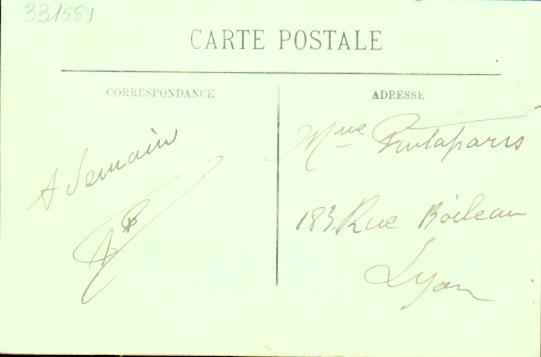 331589
CARTE POSTALE
CORRESPONDANCE
A demain
ADRESSE
Mme
183 Rue Boileau
Lyon